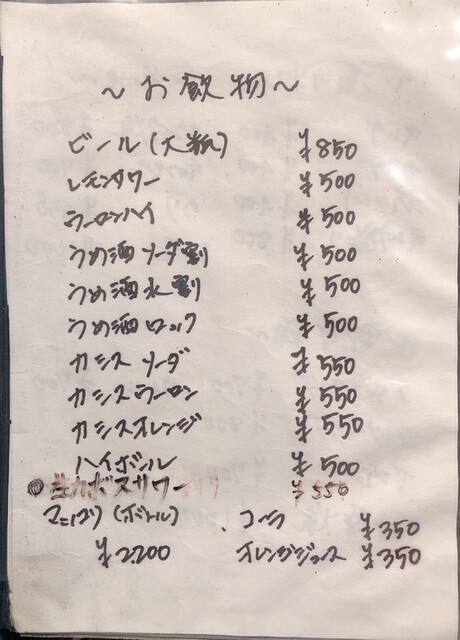 ～お飲物～
ビール(大瓶) ¥850
レモンサワー ¥500
ウーロンハイ ¥500
うめ酒ソーダ割 ¥500
うめ酒水割 ¥500
うめ酒ロック ¥500
カシスソーダ ¥550
カシスウーロン ¥550
カシスオレンジ ¥550
ハイボール ¥500
◎生カボスサワー ¥550
(ボトル) コーラ ¥350
¥2200 オレンジジュース ¥350